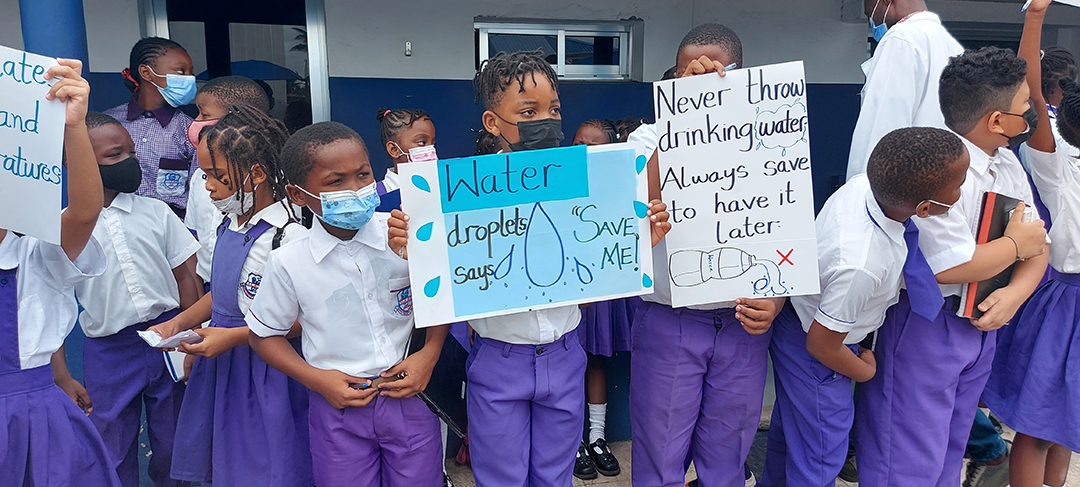 and
Water
droplets
says
"SAVE
ME!
Never throw
drinking water.
Always save
to have it
later.